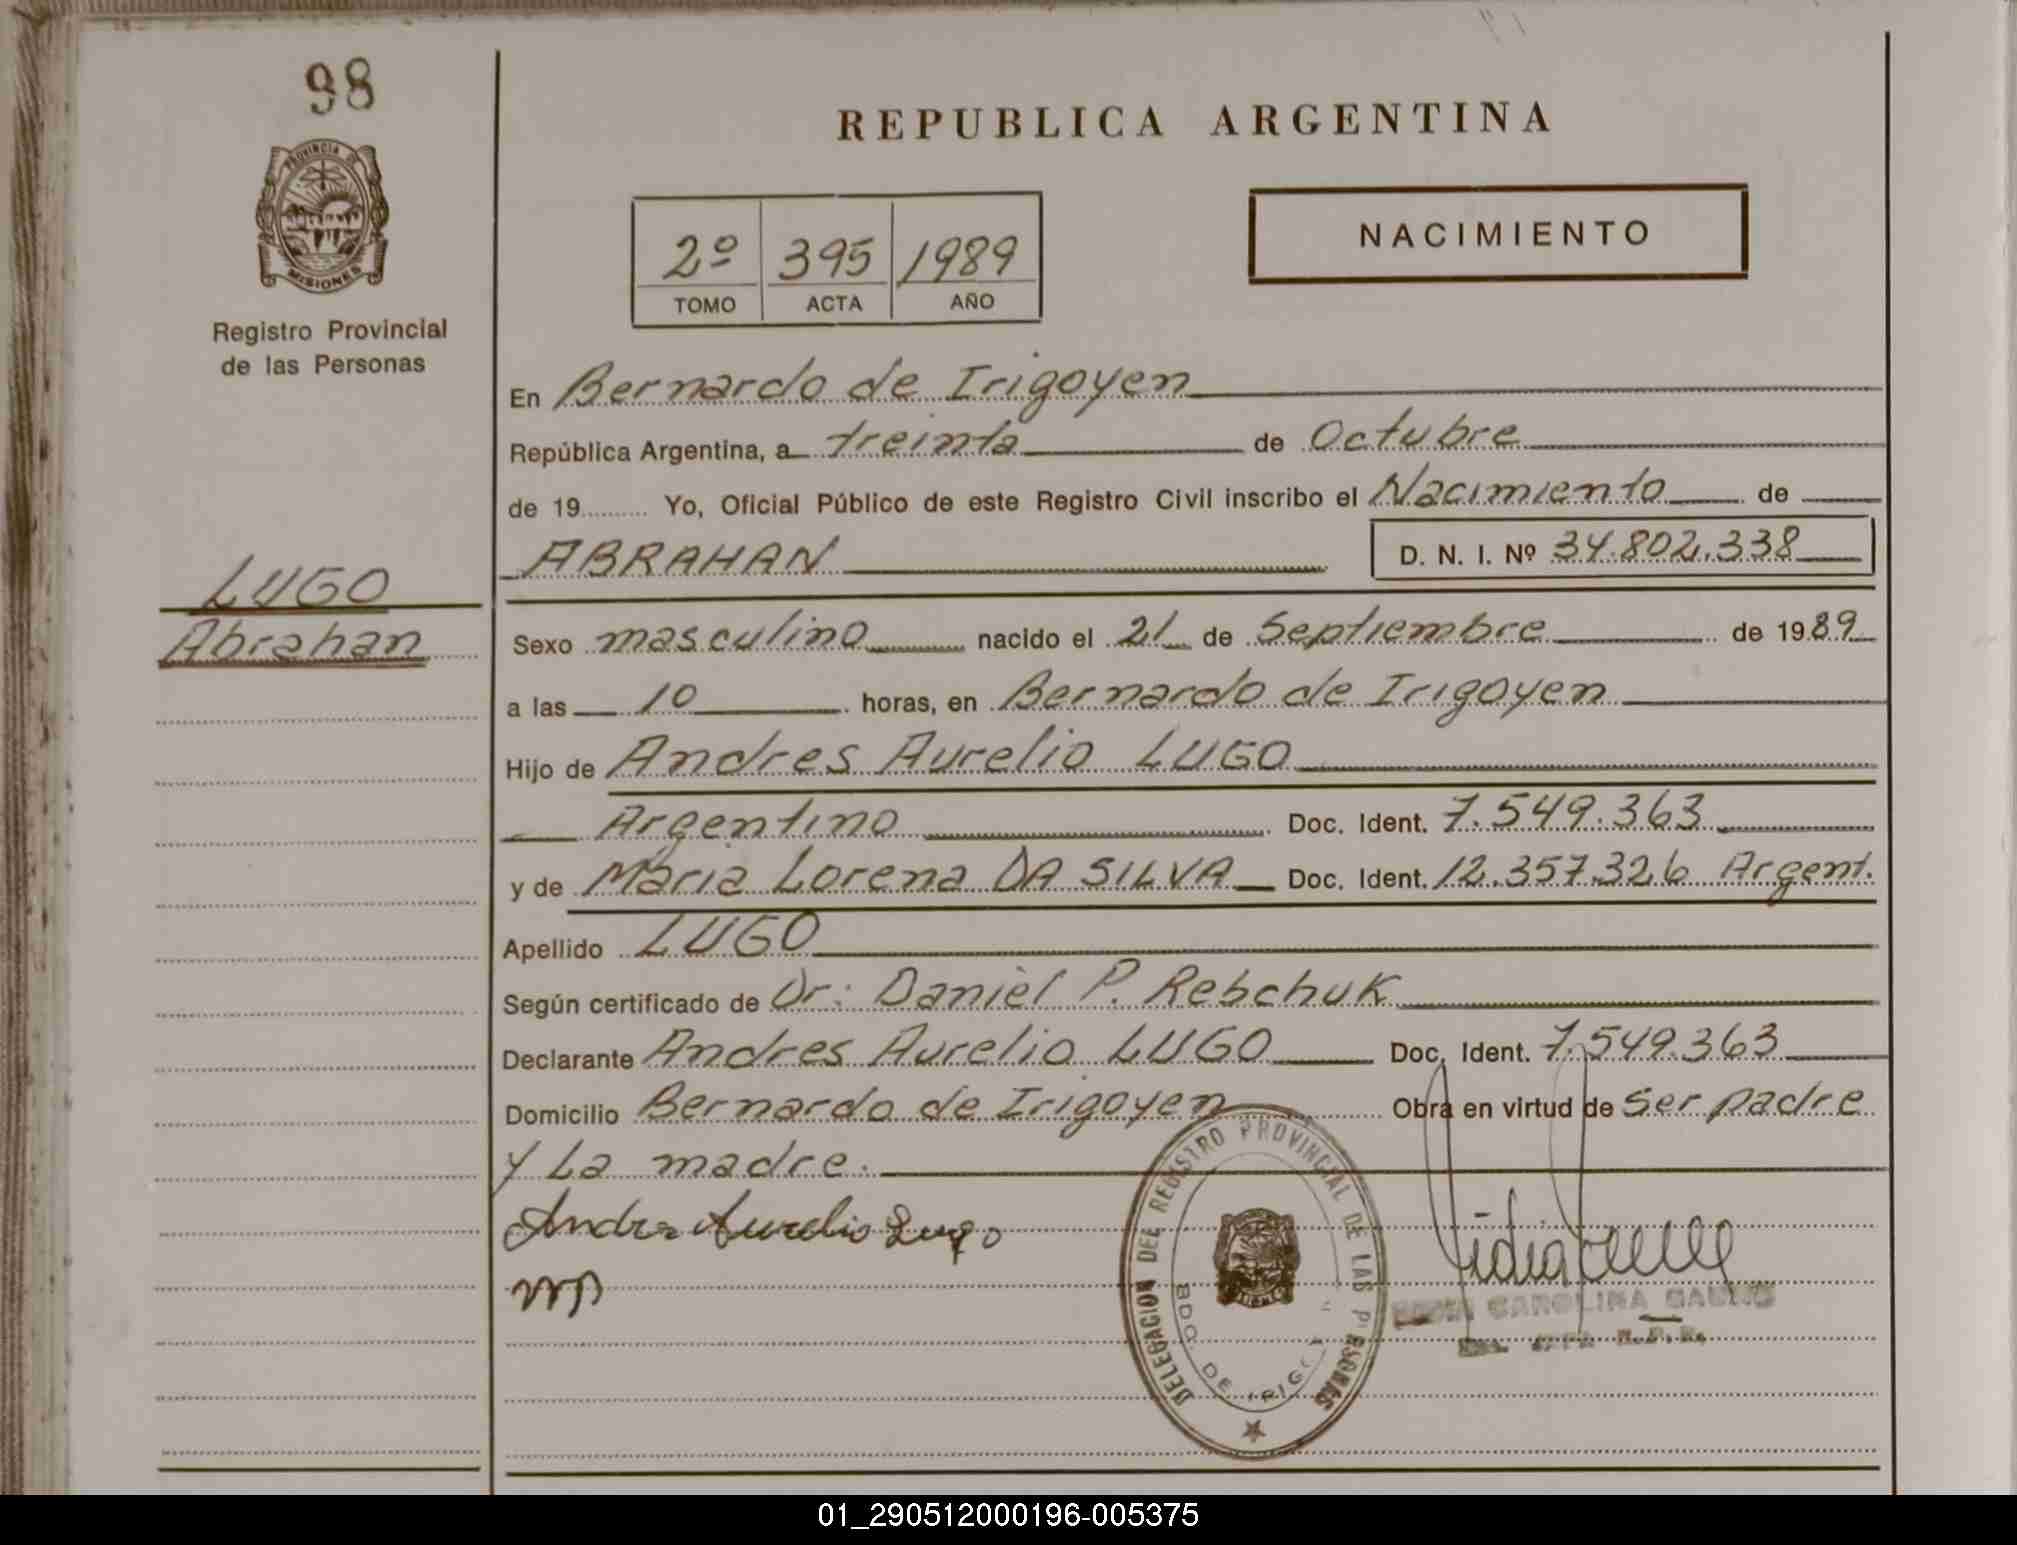 98
PROVINCIA DE
MISIONES
Registro Provincial
de las Personas
LUGO
Abrahan
REPUBLICA ARGENTINA
2º 395 1989
TOMO ACTA AÑO
NACIMIENTO
En Bernardo de Irigoyen
República Argentina, a treinta de Octubre
de 19......... Yo, Oficial Público de este Registro Civil inscribo el Nacimiento de
ABRAHAN D. N. I. Nº 34.802.338
Sexo masculino nacido el 21 de Septiembre de 1989
a las 10 horas, en Bernardo de Irigoyen
Hijo de Andres Aurelio LUGO
Argentino Doc. Ident. 7.549.363
y de Maria Lorena DA SILVA Doc. Ident. 12.357.326 Argent.
Apellido LUGO
Según certificado de Dr: Daniel P. Rebchuk
Declarante Andres Aurelio LUGO Doc. Ident. 7.549.363
Domicilio Bernardo de Irigoyen Obra en virtud de ser padre
y La madre.
Andres Aurelio Lugo
DELEGACION DEL REGISTRO PROVINCIAL DE LAS PERSONAS
BDO. DE IRIGOYEN
CAROLINA
01_290512000196-005375